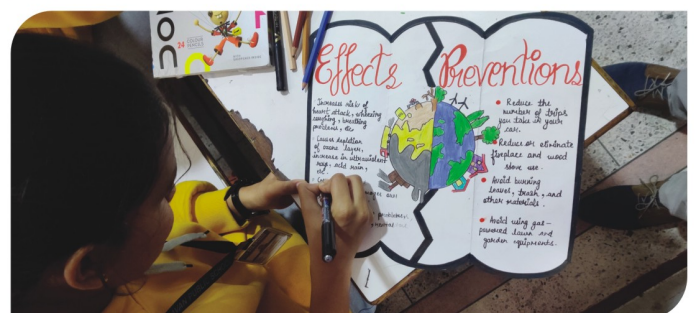 24
Effects
Increases risk of
heart attack, wheezing
coughing, breathing
problems, etc
Causes depletion
of ozone layer,
increase in ultraviolet
rays, acid rain,
etc.
problems,
Preventions
Reduce the
number of trips
you take in your
car.
Reduce or eliminate
fireplace and wood
stove use.
Avoid burning
leaves, trash, and
other materials.
Avoid using gas-
powered lawn and
garden equipments.